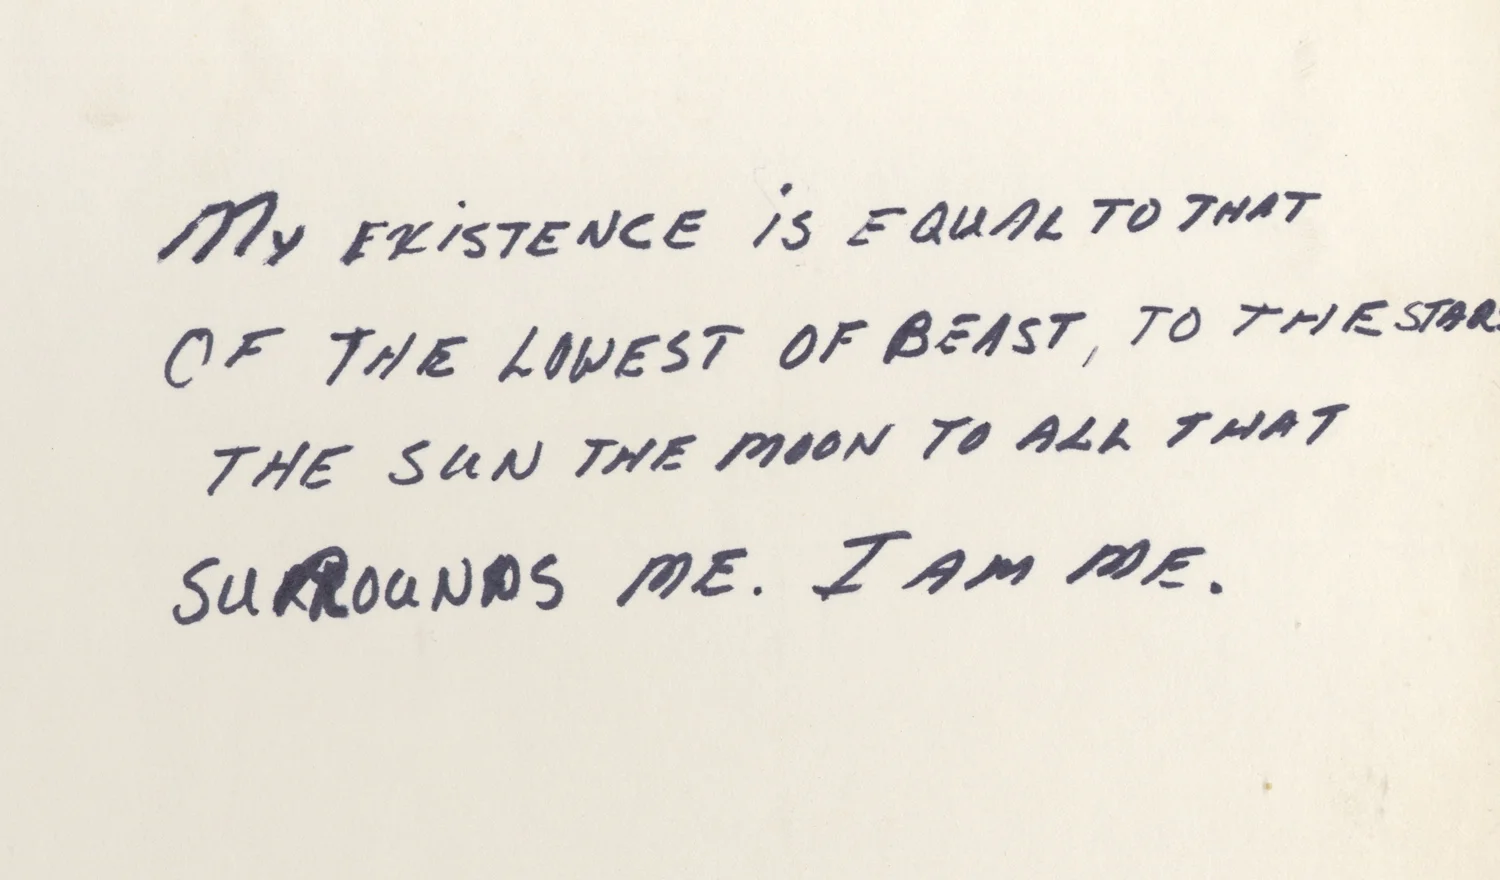 My EXiSTENCE iS EQUAL TO THAT
OF THE LOWEST OF BEAST, TO THE STARS
THE SUN THE MOON TO ALL THAT
SURROUNDS ME. I AM ME.